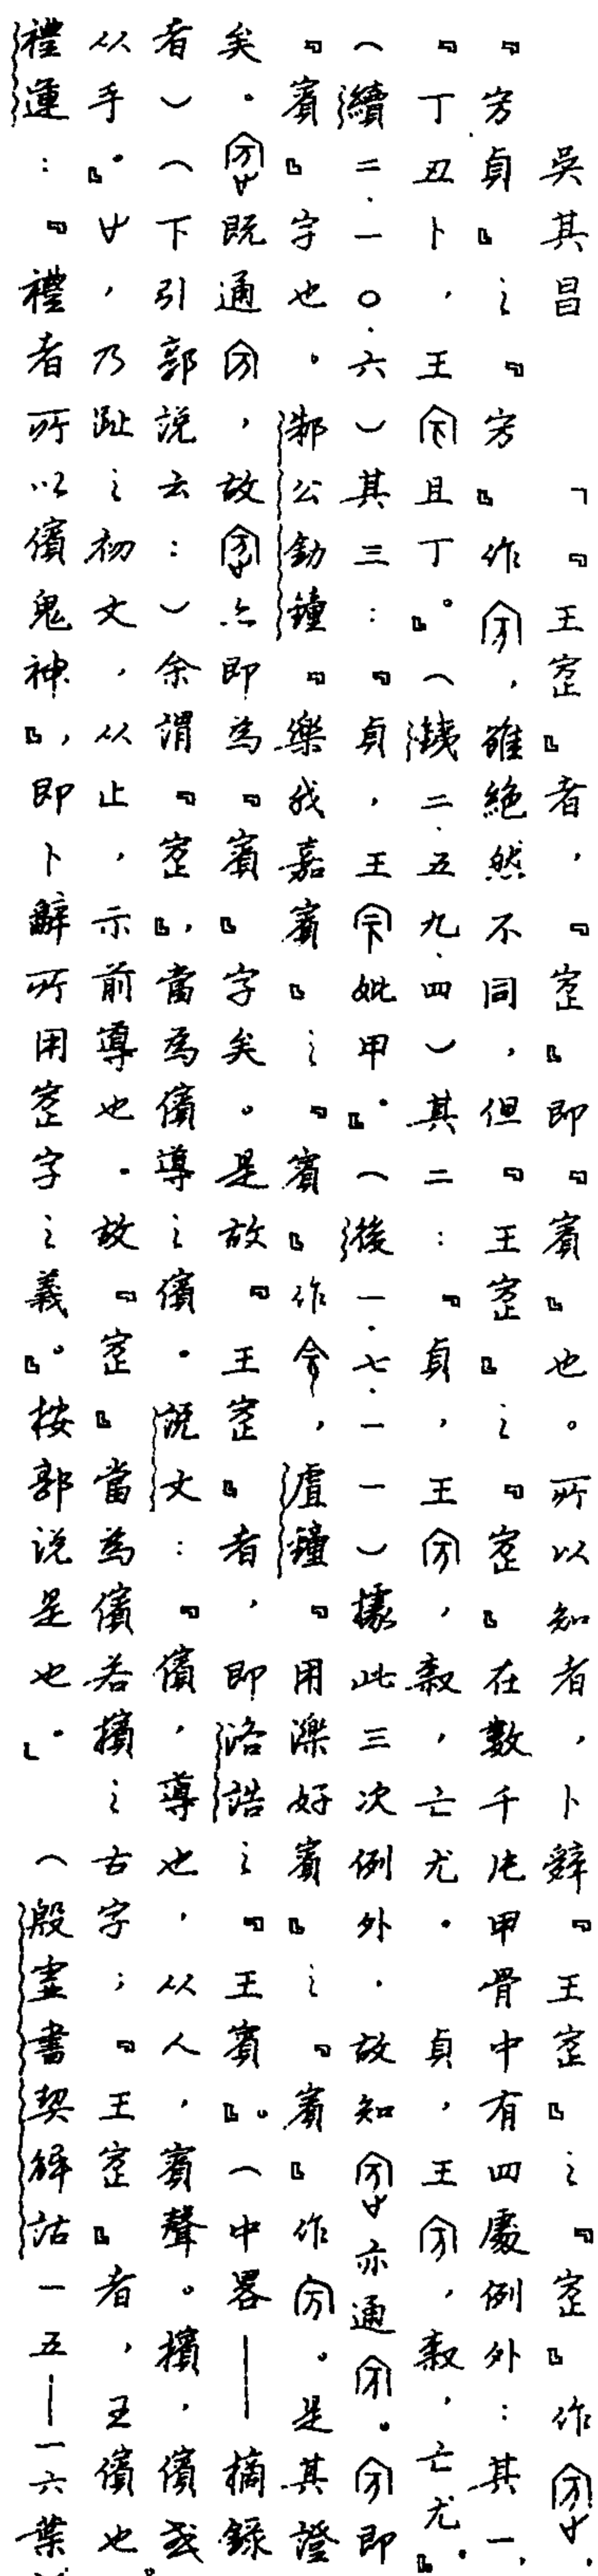 吳其昌　「『王㝨』者，『㝨』即『賓』也。所以知者，卜辭『王㝨』之『㝨』作，
『㝑貞』之『㝑』作，雖絕然不同，但『王㝨』之『㝨』在數千片甲骨中有四處例外：其一，
『丁丑卜，王且丁。』（鐵二·五九·四）其二：『貞，王，㝅，亡尤。貞，王，㝅，亡尤。』
（續二·一〇·六）其三：『貞，王妣甲。』（後一·七·一一）據此三次例外，故知亦通。即
『賓』字也。邾公釛鐘『樂我嘉賓』之『賓』作，虘鐘『用濼好賓』之『賓』作。是其證
矣。既通，故亦即為『賓』字矣。是故『王㝨』者，即洛誥之『王賓』。（中畧——摘錄
者）（下引郭說云：）余謂『㝨』，當為儐導之儐。說文：『儐，導也，从人，賓聲。擯，儐或
从手。』，乃趾之初文，从止，示前導也。故『㝨』當為儐若擯之古字；『王㝨』者，王儐也。
禮運：『禮者所以儐鬼神』，即卜辭所用㝨字之義。』按郭說是也。」（殷虛書契解詁一五——一六葉